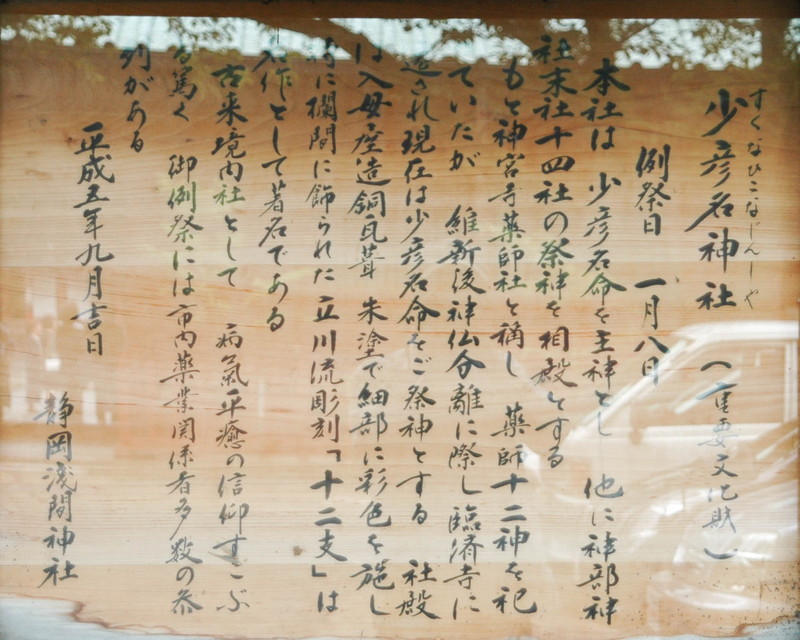 すくなひこなじんじゃ
少彦名神社 (重要文化財)
例祭日 一月八日
本社は 少彦名命を主神とし 他に神部神
社末社十四社の祭神を相殿とする
もと神宮寺薬師社と称し 薬師十二神を祀
ていたが 維新後神仏分離に際し臨済寺に
遷され現在は少彦名命をご祭神とする 社殿
は入母屋造銅瓦葺 朱塗で細部に彩色を施し
特に欄間に飾られた立川流彫刻「十二支」は
名作として著名である
古来境内社として 病氣平癒の信仰すこぶ
る篤く 御例祭には市内薬業関係者多数の参
列がある
平成五年九月吉日
静岡浅間神社